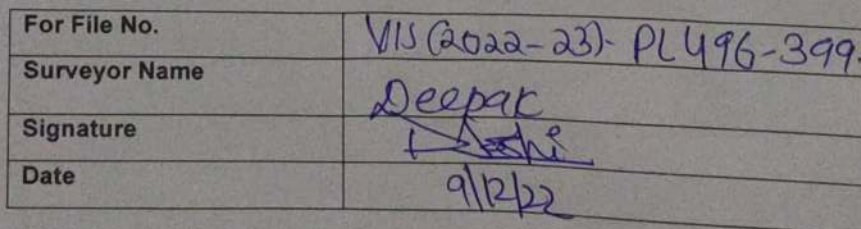 For File No. VIS(2022-23)-PL496-399.
Surveyor Name Deepak
Signature
Date 9/12/22